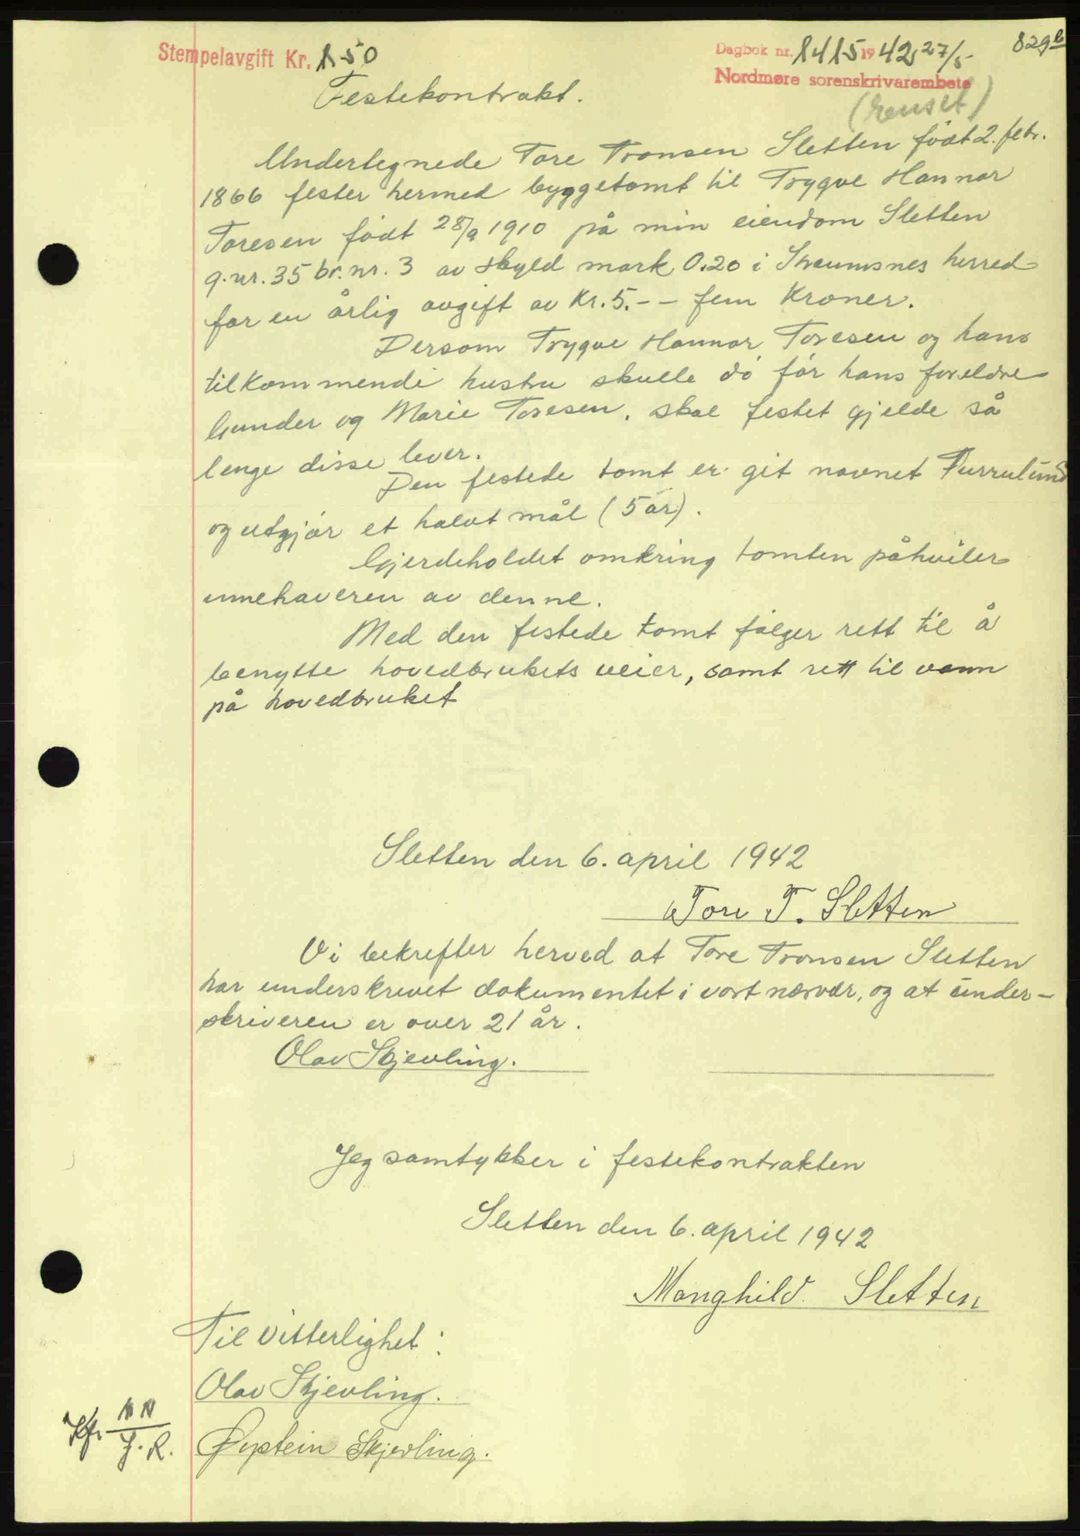 Stempelavgift Kr. 1.50
Dagbok nr. 1415 1942 27/5
829 b
Nordmøre sorenskrivarembete
(renset)
Festekontrakt.
Undertegnede Tore Tronsen Sletten født 2. febr.
1866 fester hermed byggetomt til Trygve Hannar
Toresen født 28/9 1910 på min eiendom Sletten
g.nr. 35 br.nr. 3 av skyld mark 0.20 i Straumsnes herred
for en årlig avgift av Kr. 5.-- fem Kroner.
Dersom Trygve Hannar Toresen og hans
tilkommende hustru skulle dø før hans foreldre
Gunder og Marie Toresen, skal festet gjelde så
lenge disse lever.
Den festede tomt er git navnet Furrulund
og utgjør et halvt mål (5 ar).
Gjerdeholdet omkring tomten påhviler
innehaveren av denne.
Med den festede tomt følger rett til å
benytte hovedbrukets veier, samt rett til vann
på hovedbruket
Sletten den 6. april 1942
Tore T. Sletten
Vi bekrefter herved at Tore Tronsen Sletten
har underskrevet dokumentet i vort nærvær, og at under-
skriveren er over 21 år.
Olav Skjevling.
Jeg samtykker i festekontrakten
Sletten den 6. april 1942
Manghild Sletten
Til vitterlighet:
Olav Skjevling.
Øystein Skjevling.
J.R.